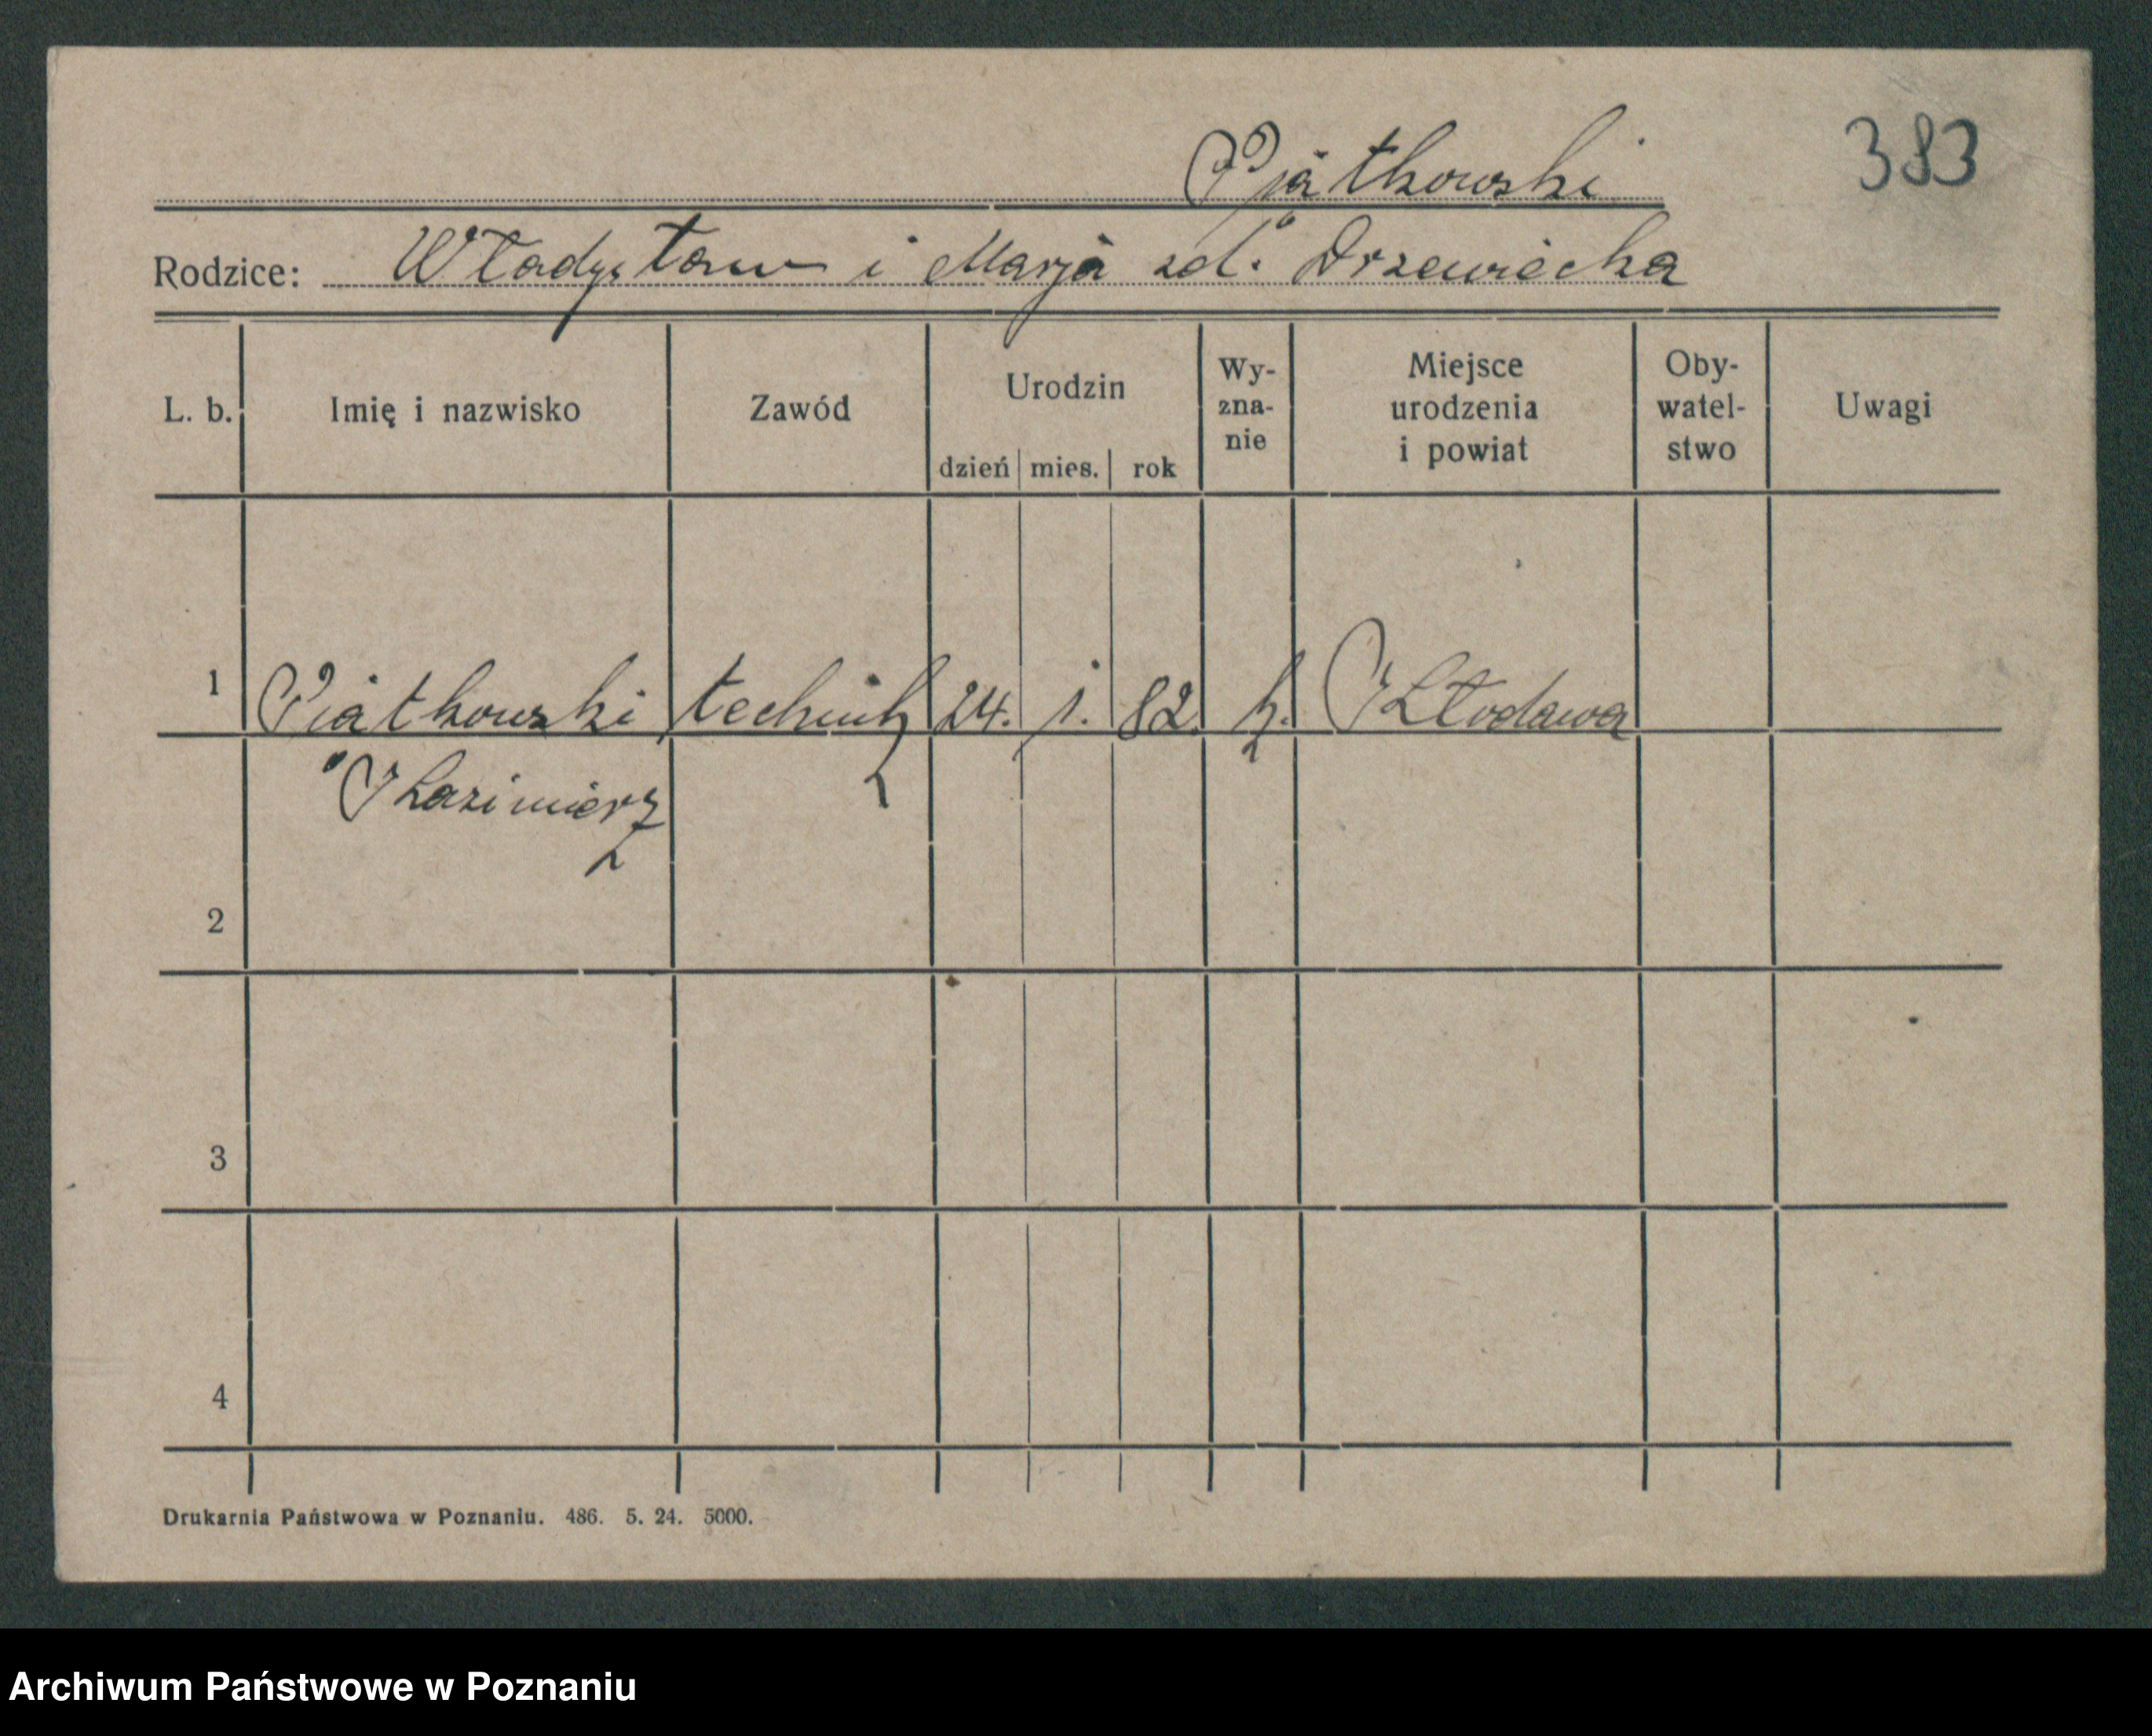 383
Piątkowski
Rodzice: Władysław i Marja zd. Drzewiecka
L. b. Imię i nazwisko Zawód Urodzin dzień mies. rok Wy-zna-nie Miejsce urodzenia i powiat Oby-watel-stwo Uwagi
1 Piątkowski technik 24. 1. 82. k. Kłodawa
Kazimierz
2
3
4
Drukarnia Państwowa w Poznaniu. 486. 5. 24. 5000.
Archiwum Państwowe w Poznaniu